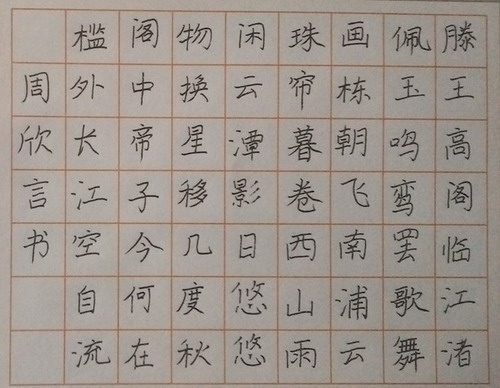 滕王高阁临江渚
佩玉鸣鸾罢歌舞
画栋朝飞南浦云
珠帘暮卷西山雨
闲云潭影日悠悠
物换星移几度秋
阁中帝子今何在
槛外长江空自流
周欣言书